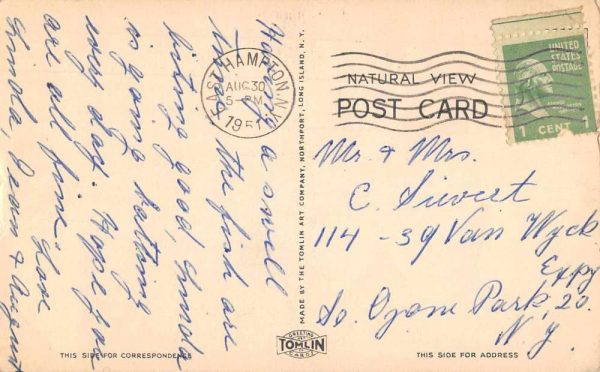 Having a swell
time. the fish are
biting good, Imelda
is going bathing
every day. Hope you
are all fine. Love
Imelda, Jean &
EAST HAMPTON, N.Y.
AUG 30
5-PM
1951
MADE BY THE TOMLIN ART COMPANY, NORTHPORT, LONG ISLAND, N.Y.
NATURAL VIEW
POST CARD
UNITED
STATES
POSTAGE
1 CENT 1
Mr. & Mrs.
C. Sievert
114-39 Van Wyck
Expy
So. Ozone Park, 20.
N.Y.
THIS SIDE FOR CORRESPONDENCE
GREETING
TOMLIN
CARDS
THIS SIDE FOR ADDRESS